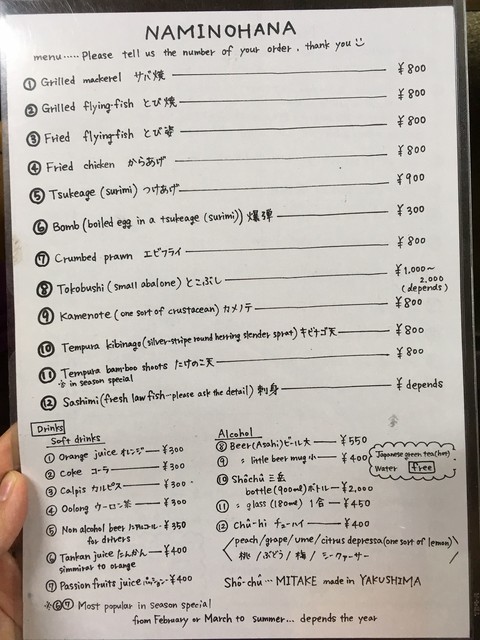 NAMINOHANA
menu ····· Please tell us the number of your order. thank you
① Grilled mackerel サバ焼 ¥800
② Grilled flying-fish とび焼 ¥800
③ Fried flying-fish とび姿 ¥800
④ Fried chicken からあげ ¥800
⑤ Tsukeage (surimi) つけあげ ¥900
⑥ Bomb (boiled egg in a tsukeage (surimi)) 爆弾 ¥300
⑦ Crumbed prawn エビフライ ¥800
⑧ Tokobushi (small abalone) とこぶし ¥1,000~
2,000
(depends)
⑨ Kamenote (one sort of crustacean) カメノテ ¥800
⑩ Tempura kibinago (silver-stripe round herring slender sprat) キビナゴ天 ¥800
⑪ Tempura bamboo shoots たけのこ天 ¥800
※ in season special
⑫ Sashimi (fresh law fish···please ask the detail) 刺身 ¥ depends
Drinks
Soft drinks
① Orange juice オレンジ ¥300
② Coke コーラ ¥300
③ Calpis カルピス ¥300
④ Oolong ウーロン茶 ¥300
⑤ Non alcohol beer ¥350
for drivers
⑥ Tankan juice たんかん ¥400
simmirar to orange
⑦ Passion fruits juice パッション ¥400
※⑥⑦ Most popular in season special
from February or March to summer... depends the year
Alcohol
⑧ Beer (Asahi) ビール大 ¥550
⑨ 〃 little beer mug 小 ¥400
⑩ Shôchû 三岳
bottle (900ml) ボトル ¥2,000
⑪ 〃 glass (180ml) 1合 ¥450
⑫ Chû-hi チューハイ ¥400
peach/grape/ume/citrus depressa (one sort of lemon)
桃/ぶどう/梅/シークァーサー
Japanese green tea (hot)
Water free
Shô-chû··· MITAKE made in YAKUSHIMA